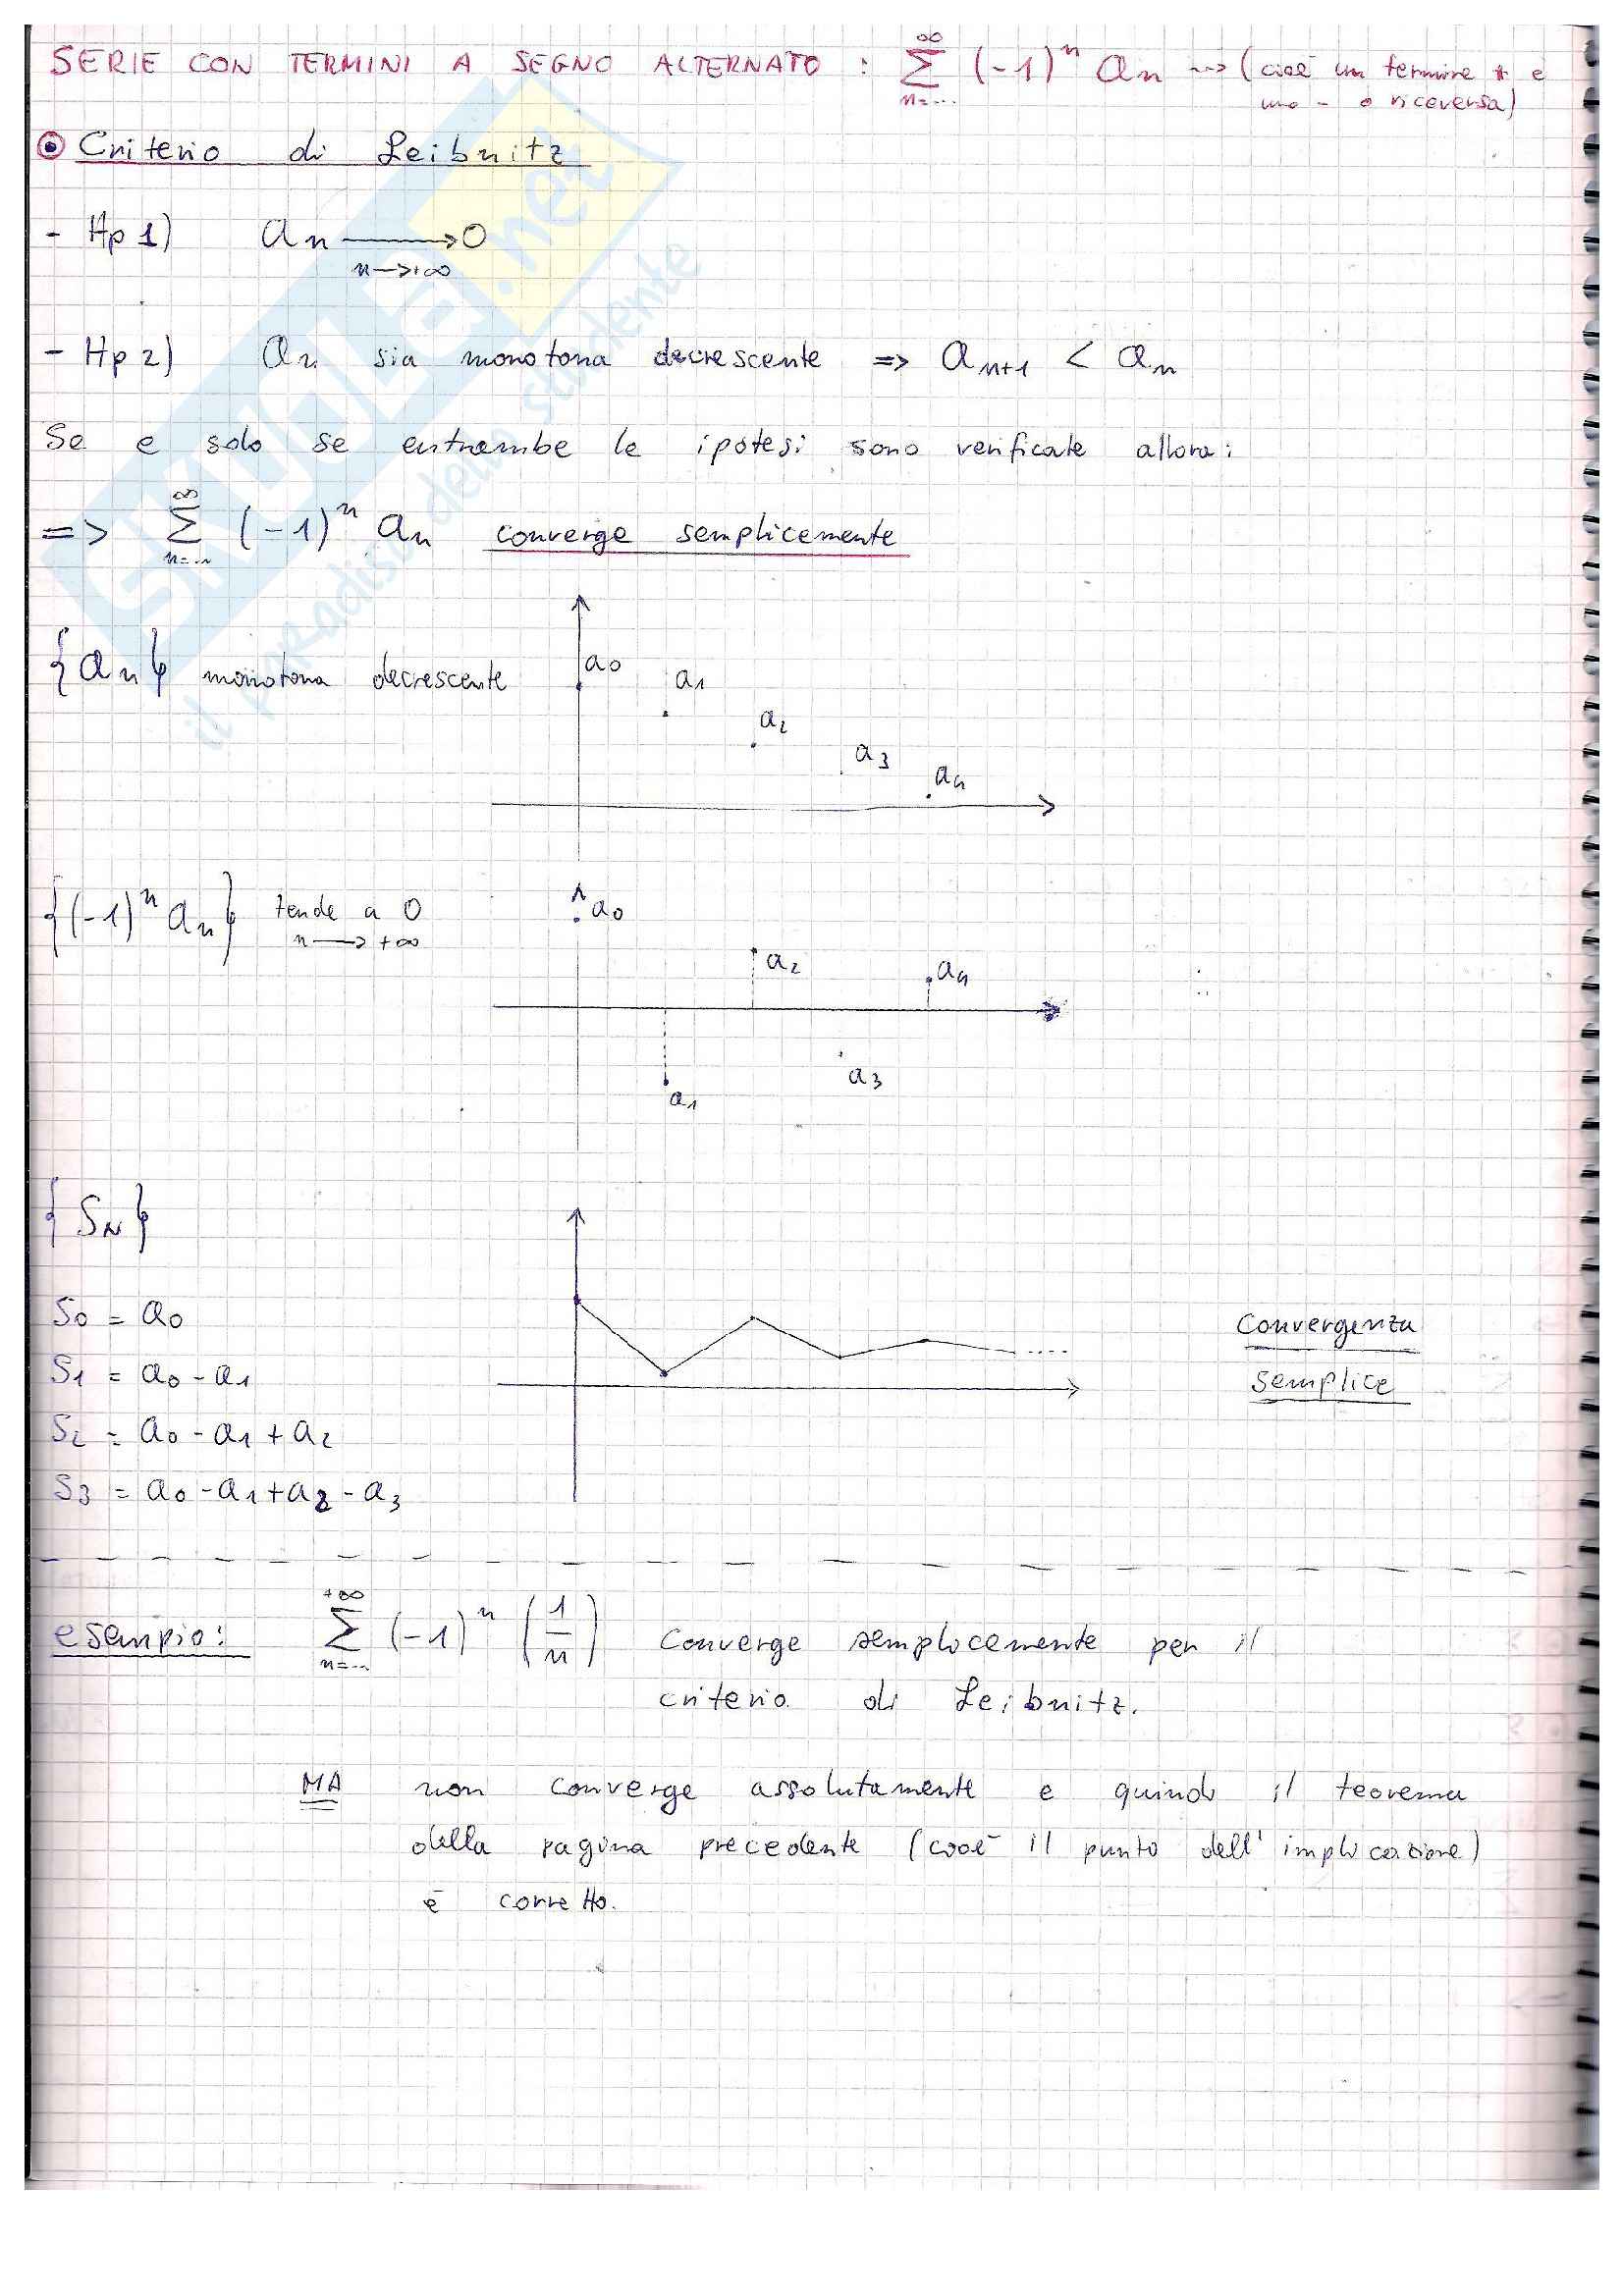 SERIE CON TERMINI A SEGNO ALTERNATO : ∞∑n=... (-1)^n an ⇝ (cioè un termine + e
uno - o viceversa)
Criterio di Leibnitz
- Hp 1) an ⟶ 0
n->+∞
- Hp 2) an sia monotona decrescente => an+1 < an
Se e solo se entrambe le ipotesi sono verificate allora:
=> ∞∑n=... (-1)^n an converge semplicemente
{an} monotona decrescente
a0
a1
a2
a3
a4
{(-1)^n an} tende a 0
n ⟶ +∞
a0
a2
a4
a3
a1
{SN}
S0 = a0
S1 = a0 - a1
S2 = a0 - a1 + a2
S3 = a0 - a1 + a2 - a3
Convergenza
semplice
esempio: +∞∑n=... (-1)^n (1/n) Converge semplocemente per il
criterio di Leibnitz.
MA non converge assolutamente e quindi il teorema
della pagina precedente (cioè il punto dell'implicazione)
è corretto.
SKUOLA.net
il paradiso dello studente